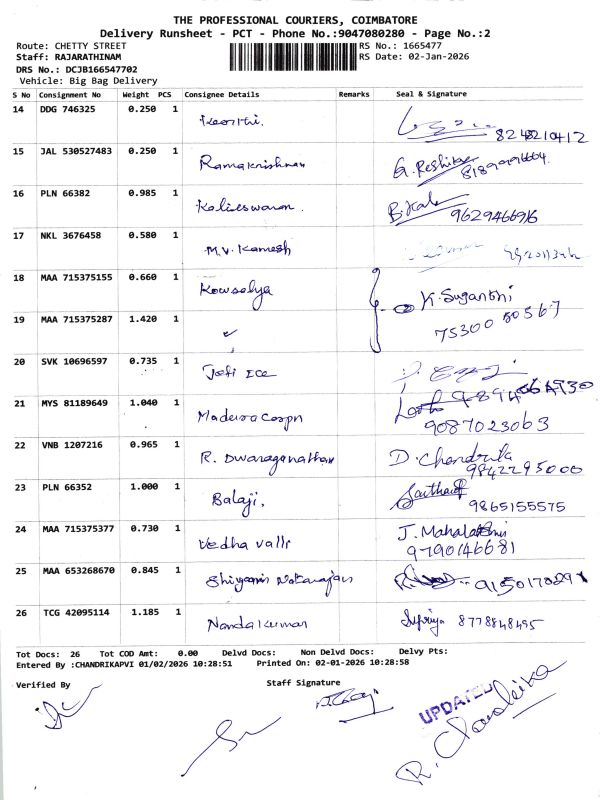 THE PROFESSIONAL COURIERS, COIMBATORE
Delivery Runsheet - PCT - Phone No.:9047080280 - Page No.:2
Route: CHETTY STREET RS No.: 1665477
Staff: RAJARATHINAM RS Date: 02-Jan-2026
DRS No.: DCJB166547702
Vehicle: Big Bag Delivery
S No Consignment No Weight PCS Consignee Details Remarks Seal & Signature
14 DDG 746325 0.250 1 Keerthi.
15 JAL 530527483 0.250 1 Ramakrishnan G. Reshika
16 PLN 66382 0.985 1 Kaliseswaran. B. Kala 9629466916
17 NKL 3676458 0.580 1 M.V. Kamesh
18 MAA 715375155 0.660 1 Kowsalya K. Suganthi
19 MAA 715375287 1.420 1 75300 80567
20 SVK 10696597 0.735 1 Jofi Ice
21 MYS 81189649 1.040 1 Madeira Corpn 9087023063
22 VNB 1207216 0.965 1 R. Dwaraganathan D. Chandrika 9842295000
23 PLN 66352 1.000 1 Balaji, 9865155575
24 MAA 715375377 0.730 1 Vedha valli J. Mahalakshmi 9790146681
25 MAA 653268670 0.845 1 Shiyam Natarajan
26 TCG 42095114 1.185 1 Nandakumar Supriya 8778848495
Tot Docs: 26 Tot COD Amt: 0.00 Delvd Docs: Non Delvd Docs: Delvy Pts:
Entered By :CHANDRIKAPVI 01/02/2026 10:28:51 Printed On: 02-01-2026 10:28:58
Verified By Staff Signature
UPDATED
R. Chandrika